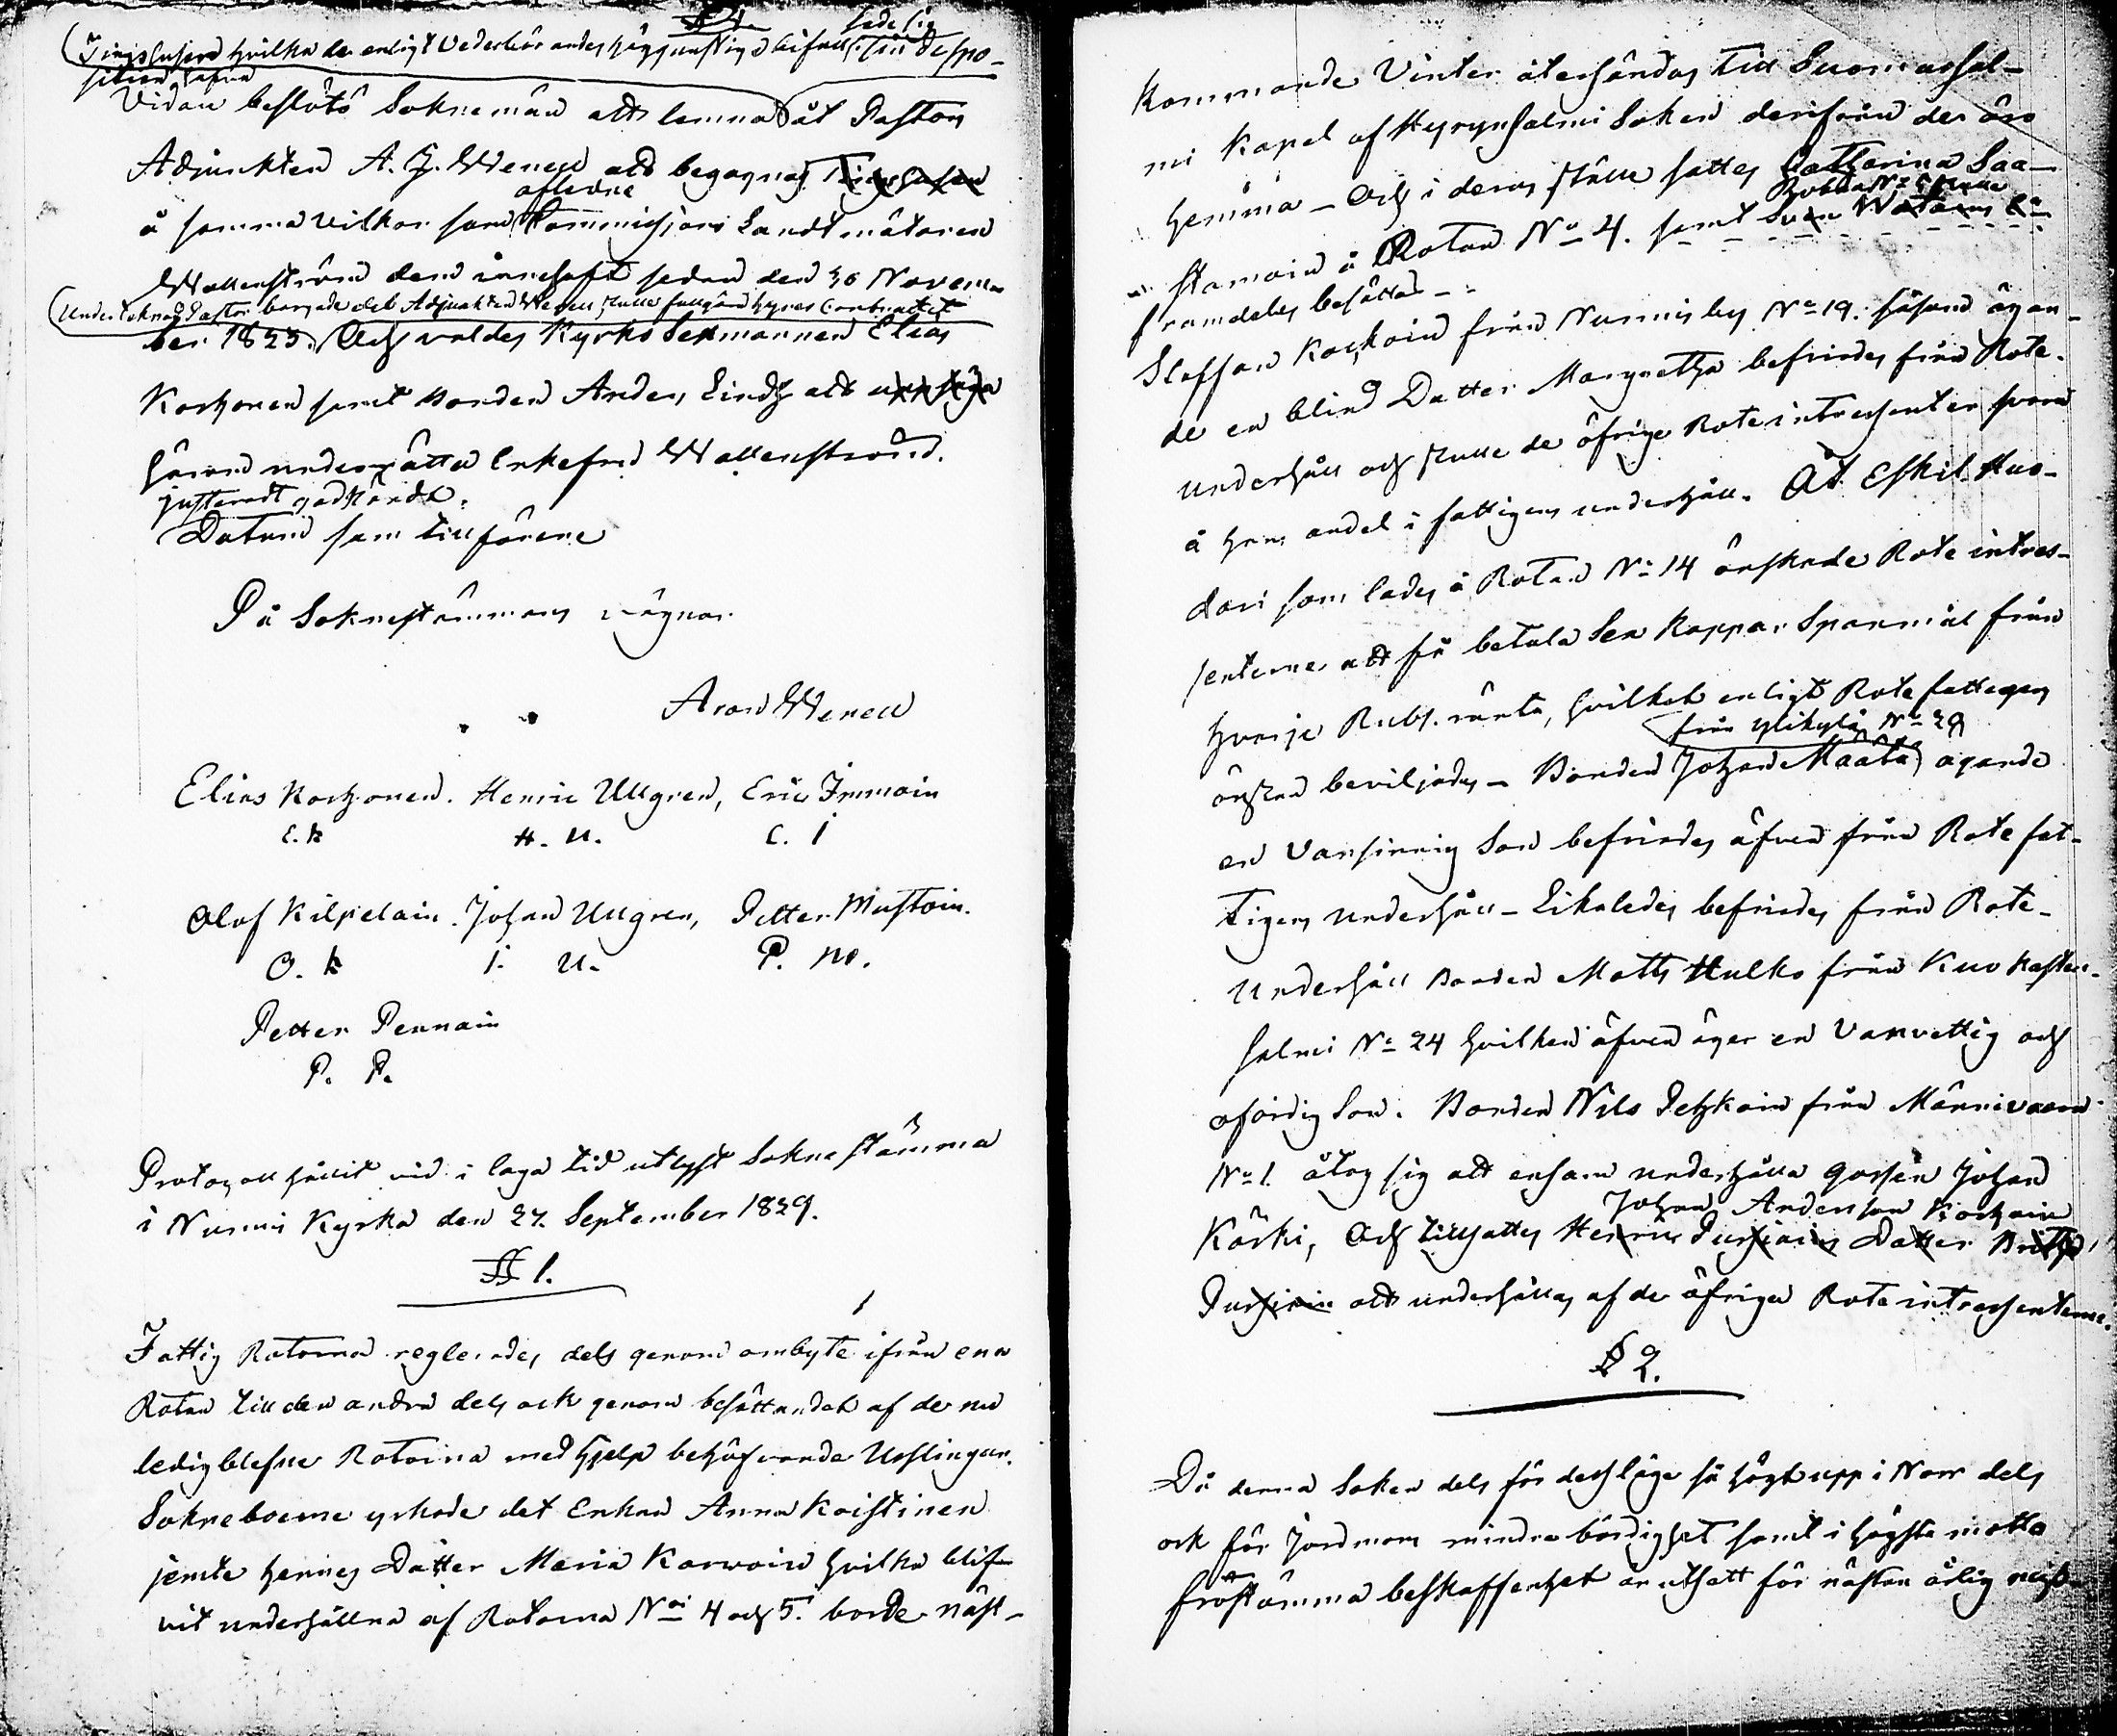 § 4.
Tingshusen hvilka de enligt Vederbörandes höggunstiga bifall hade sin dispo-
sition häfva
Vidare beslöto Soknemän att lemna åt Pastors
Adjunkten A. J. Wenell att begagnas Tingshusen
å samma vilkor som aflidne Kommissions Landtmätaren
Wallenström dem innehaft sedan den 30 Novem-
Undertecknad Pastor borgade det Adjunkten Wenell skulle fullgöra hyres Contractet
ber 1825. Och valdes Kyrko Sexmannen Elias
Korhonen samt Bonden Anders Lindh att
härom underrätta Enkefru Wallenström.
justeradt godkändt.
Datum som tillförene
På Soknestämmans vägnar
Aron Wenell
Elias Korhonen. Henric Ullgren, Eric Immoin
E. K H. U. E. I
Olof Kilpelain. Johan Ullgren, Petter Mustoin.
O. K J. U. P. M.
Petter Pennain
P. P.
Protocoll hållit vid i laga tid utlyst Sokne stämma
i Nurmis Kyrka den 27. September 1829.
§ 1.
Fattig Rotorna reglerades dels genom ombyte ifrån ena
Rotan till den andra dels ock genom besättandet af de nu
ledigblefne Rotorna med hjelp behöfvande Usslingar.
Sokneboerne yrkade det Enkan Anna Koistinen
jemte hennes Dotter Maria Karvoin hvilka blif-
vit underhållna af Rotorna Noi 4 och 5. borde näst-
kommande Vinter återsändas till Suomussal-
mi Kapel af Hyrynsalmi Soken derifrån de äro
hemma - Och i deras ställe sattes Catharina Saa-
stamoin å Rotan No 4. samt Sven
Bobba No 5 skulle
framdeles besättas -
Staffan Kaskoin från Nurmis by No 19. såsom ägan-
de en blind Dotter Margretha befriades från Rote-
underhåll och skulle de öfrige Roteintressenter svara
å hans andel i fattigens underhåll. Åt Eskil Huo-
dari som lades å Rotan No 14 önskade Rote intres-
senterne att få betala Sex Kappar Spanmål från
hvarje Rubs. ränta, hvilket enligt Rotefattigens
önskan beviljades - Bonden Johan Määttä ägande
från Ylikylä No 29
en Vansinnig Son befriades äfven från Rote fat-
tigens underhåll - Likaledes befriades från Rote-
Underhåll Bonden Matts Hulko från Kuokkasten-
salmi No 24 hvilken äfven äger en Vanvettig och
ofärdig Son. Bonden Nils Pehkoin från Männivaara
No 1. åtog sig att ensam underhålla gossen Johan
Johan Andersson Korhoin
Körki, Och tillsattes Henric Purhoins Dotter Britha
Purhoin att underhållas af de öfriga Roteintressenterne.
§ 2.
Då denna Soken dels för dess läge så högt upp i Norr dels
ock för Jordmons mindre bördighet samt i högsta motto
froströmma beskaffenhet är utsatt för nästan årlig miss-